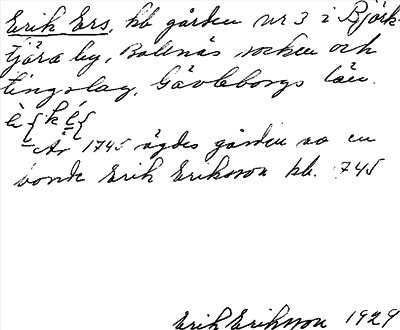 Erik Ers, kb gården nr 3 i Björk-
tjära by, Bollnäs socken och
tingslag, Gävleborgs län.
År 1745 ägdes gården av en
bonde Erik Eriksson kb. 745
Erik Eriksson 1929